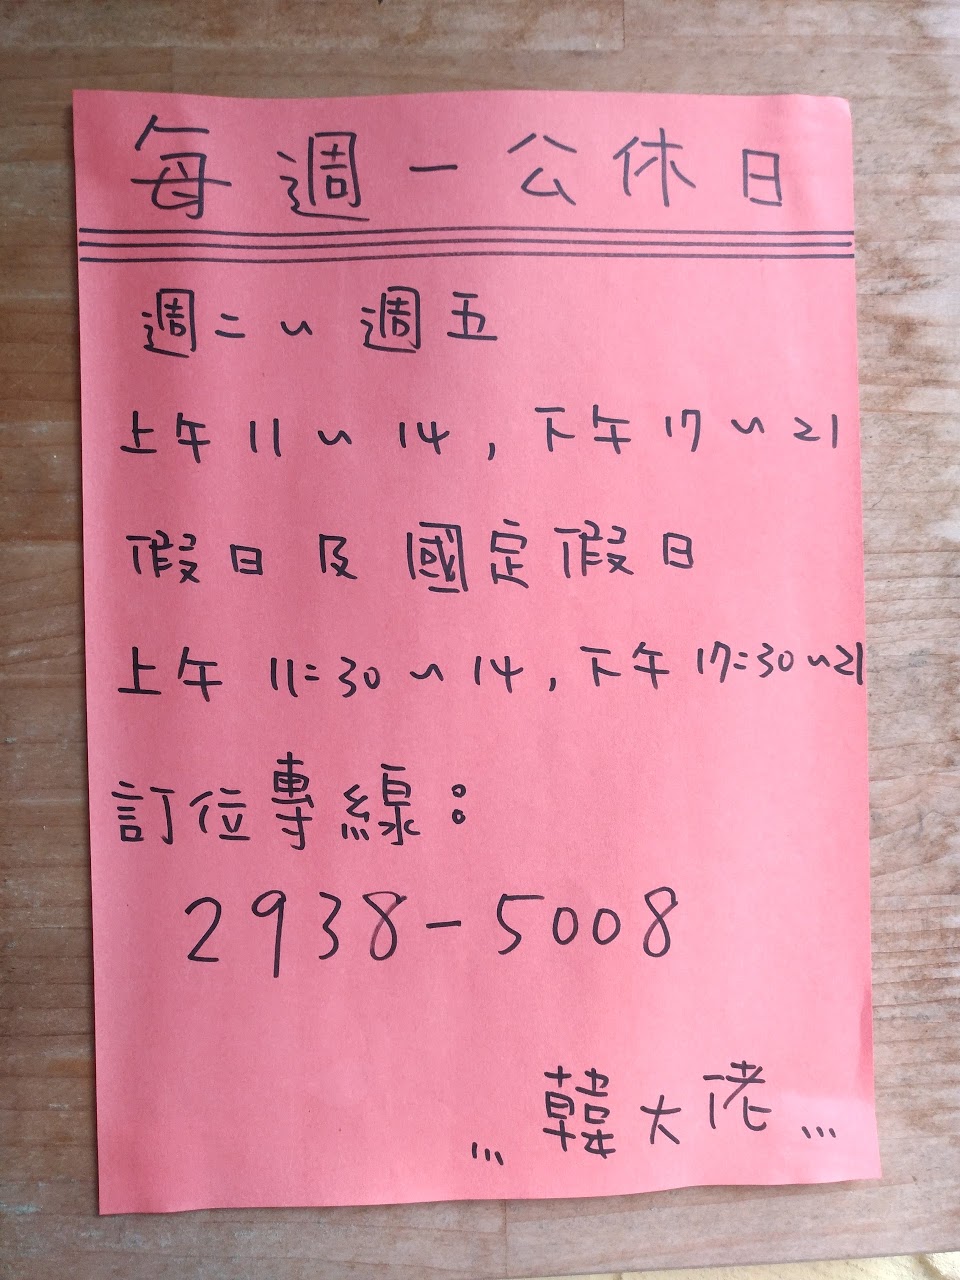 每週一公休日
週二～週五
上午11～14,下午17～21
假日及國定假日
上午11:30～14,下午17:30～21
訂位專線：
2938-5008
...韓大佬...